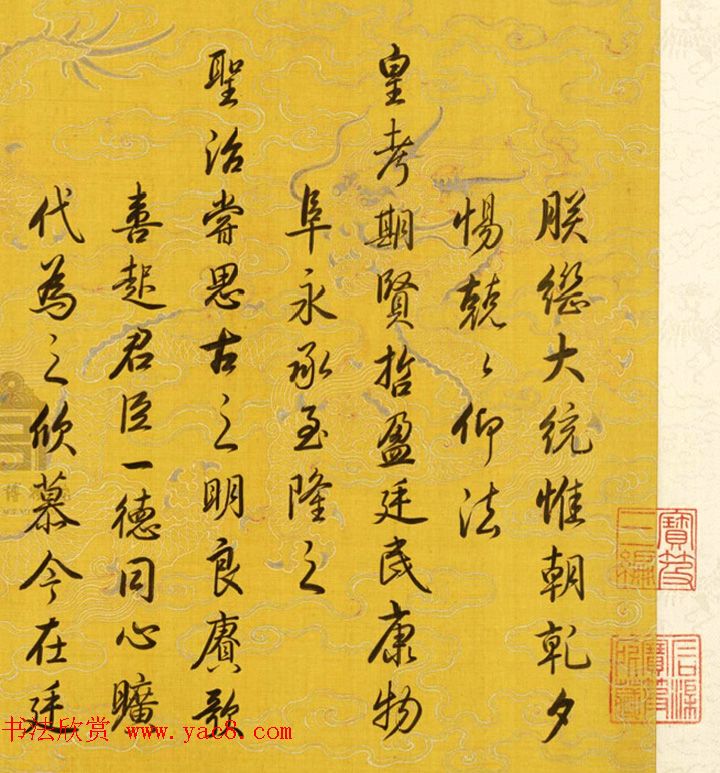 朕缵大统惟朝乾夕
惕兢〻仰法
皇考期賢哲盈廷民康物
阜永承至隆之
聖治嘗思古之明良賡歌
喜起君臣一德同心曠
代為之欣慕今在廷
寶笈三編
石渠寶笈所藏
书法欣赏 www.yac8.com